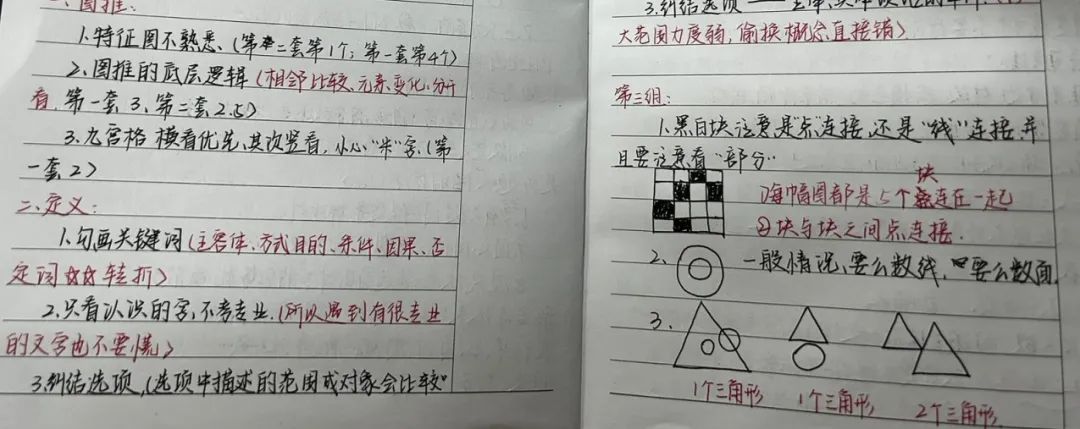 一、图推:
1.特征图不熟悉、(第二套第1个;第一套第4个)
2、图推的底层逻辑(相邻比较、元素、变化、分开
看,第一套3、第二套2.5)
3.九宫格 横看优先,其次竖看,小心"米"字、(第
一套2)
二、定义:
1、勾画关键词(主客体、方式目的、条件、因果、否
定词 转折)
2、只看认识的字,不考专业.(所以遇到有很专业
的文字也不要慌)
3.纠结选项,(选项中描述的范围或对象会比较"
3.纠结选项
大范围力度弱,偷换概念直接错)
第三组:
1、黑白块注意是"点"连接,还是"线"连接,并
且要注意看"部分"
①每幅图都是5个块连在一起
②块与块之间点连接.
2、一般情况,要么数线,要么数面,
3、
1个三角形 1个三角形 2个三角形